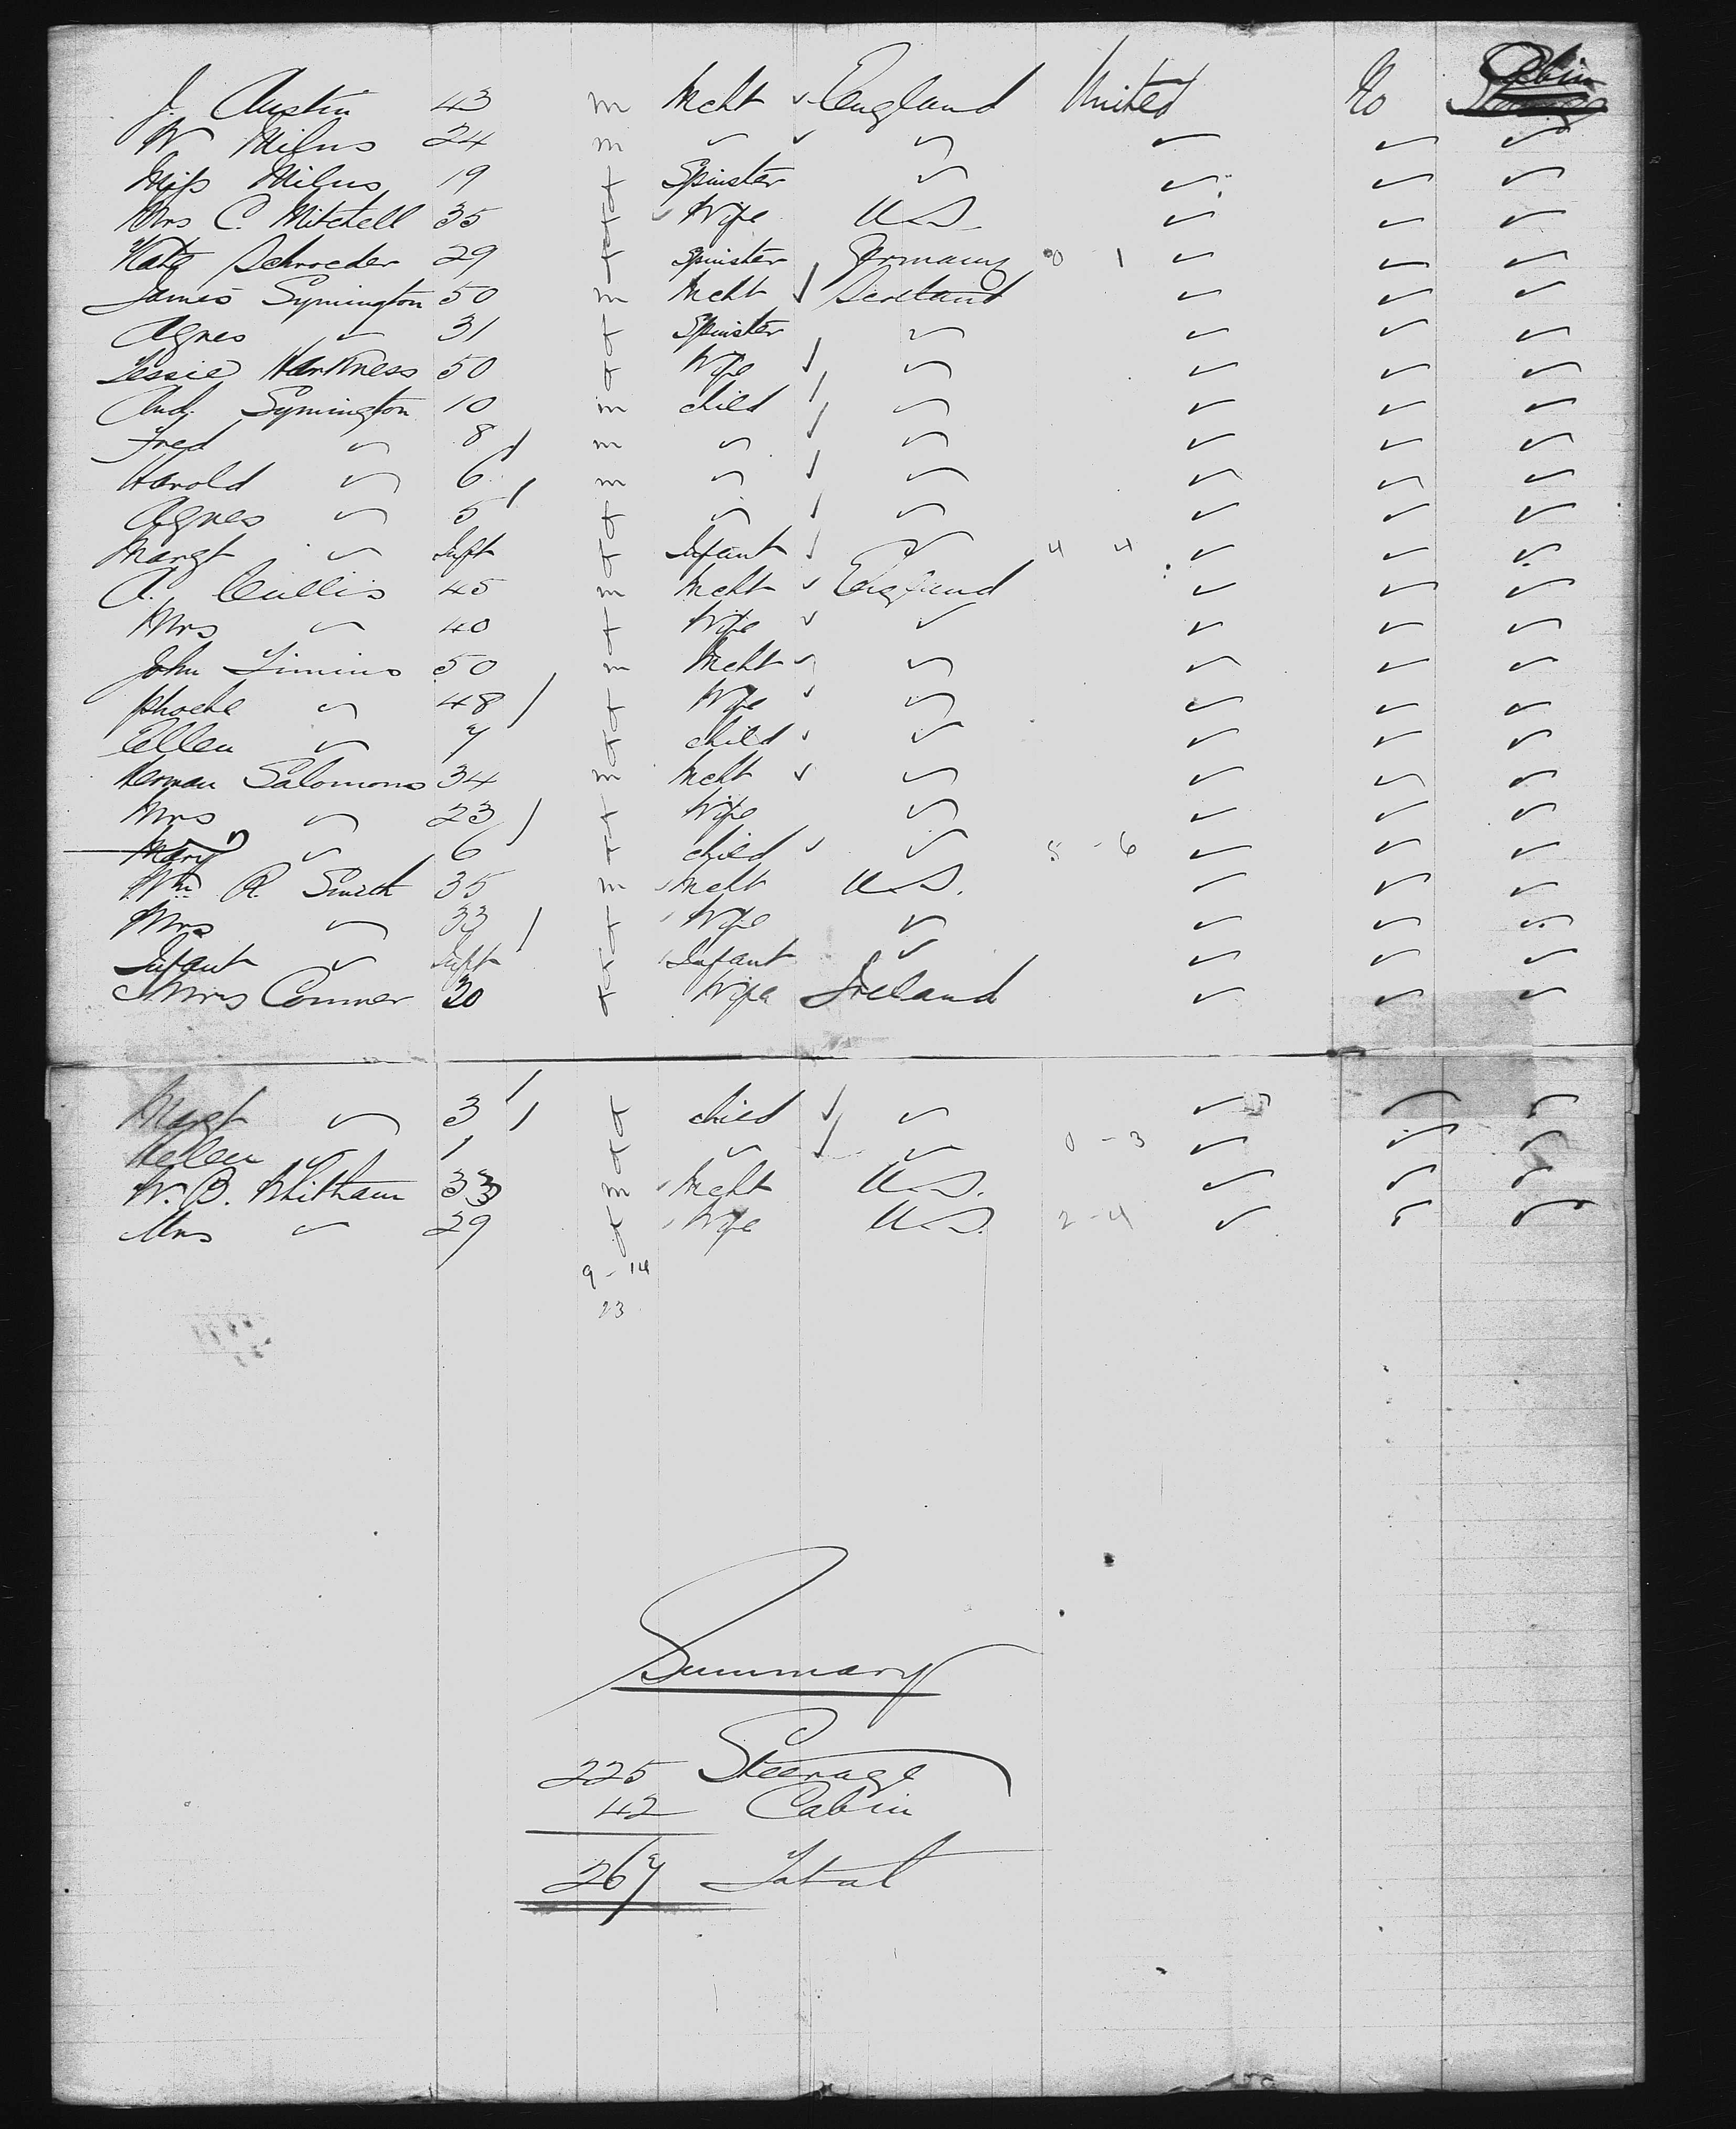 J. Austin 43 m Mcht ✓ England United No Cabin
W Milns 24 m " ✓ " " " "
Miss Milns 19 f Spinster " " " "
Mrs C. Mitchell 35 f ✓ Wife U.S. " " "
Kate Schroeder 29 f Spinster Germany 0 1 " " "
James Symington 50 m Mcht ✓ Scotland " " "
Agnes " 31 f Spinster " " " "
Jessie Harkness 50 f Wife ✓ " " " "
And. Symington 10 m child " " " "
Fred " 8 m " ✓ " " " "
Harold " 6 m " ✓ " " " "
Agnes " 5 f " ✓ " " " "
Margt " Inft f Infant ✓ " 4 4 " " "
A. Cullis 45 m Mcht ✓ England " " "
Mrs " 40 f Wife ✓ " " " "
John Timins 50 m Mcht ✓ " " " "
Phoebe " 48 f Wife ✓ " " " "
Ellen " 7 f child ✓ " " " "
Herman Salomons 34 m Mcht ✓ " " " "
Mrs " 23 f Wife " " " "
Mary " 6 f child ✓ " 5 - 6 " " "
Wm. R. Smith 35 m Mcht U.S. " " "
Mrs " 33 f Wife " " " "
Infant " Inft f Infant " " " "
Mrs Conner 30 f Wife Ireland " " "
Margt " 3 f child ✓ " " " "
Hellen " 1 f " ✓ " 0 - 3 " " "
W. B. Whitham 33 m Mcht U.S. " " "
Mrs " 29 f Wife U.S. 2 - 4 " " "
9 - 14
23
Summary
225 Steerage
42 Cabin
267 Total